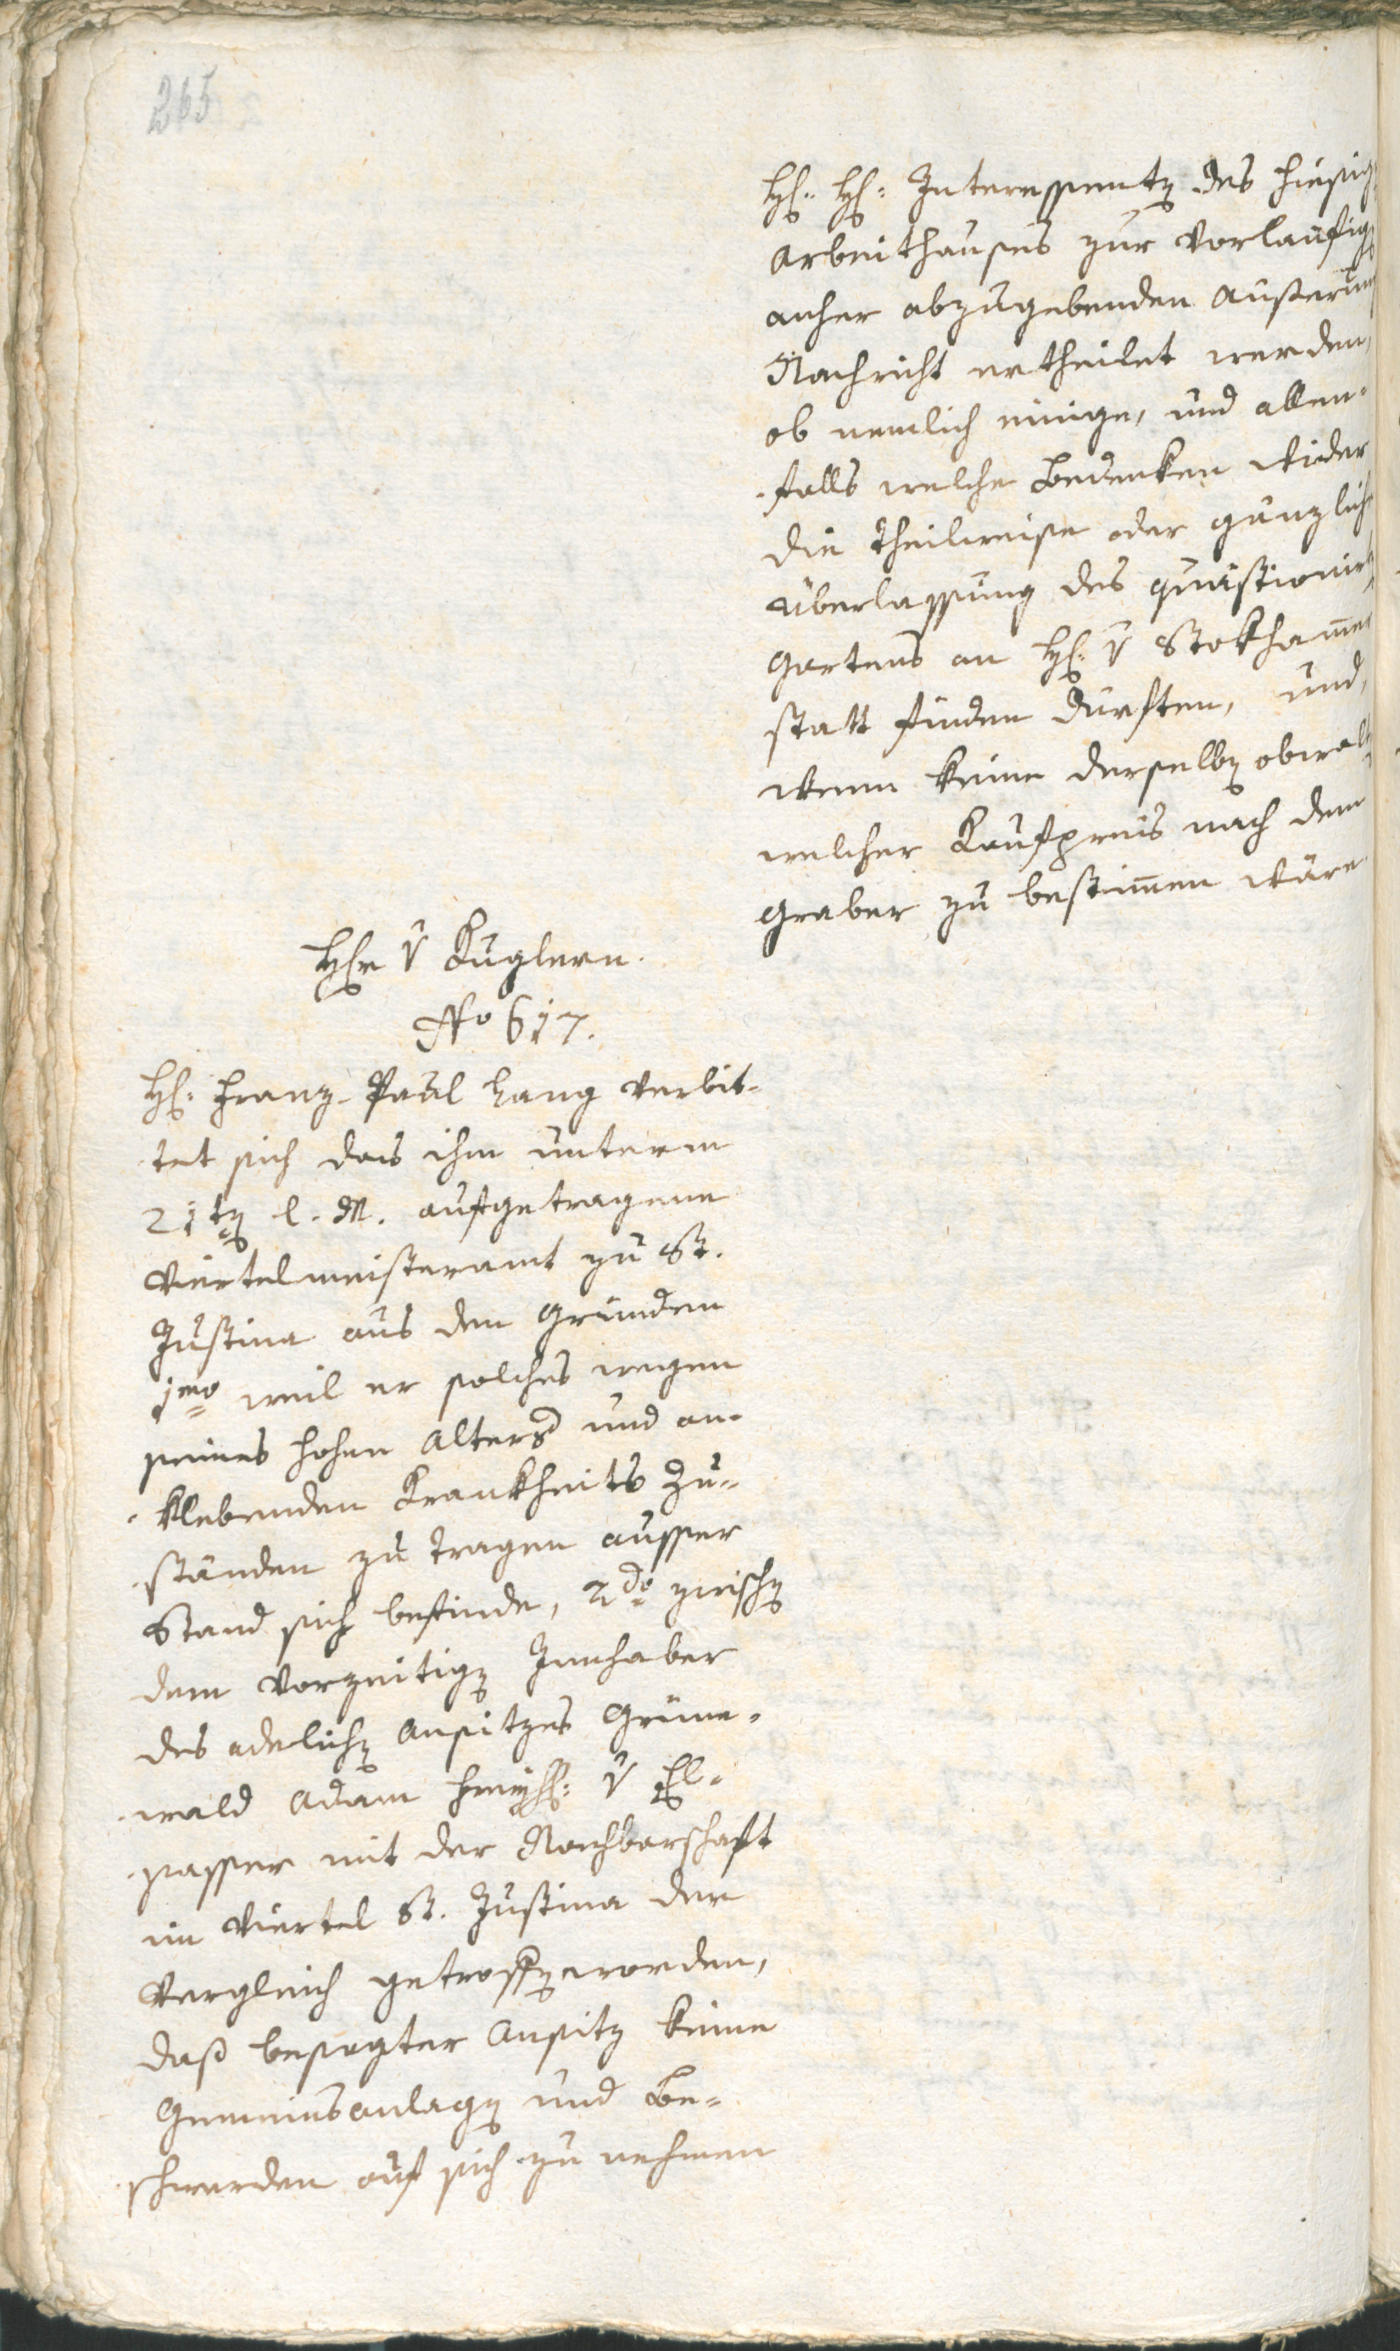 265
H: H: Interessenten des hiesig
Arbeithauses zur vorlaufig
anher abzugebenden Außerung
Nachricht ertheilet werden,
ob nemlich einige, und allen-
falls welche Bedenken wieder
die theilweise oder gänzliche
Überlassung des quästionirt
Gartens an H: v Stokhammer
statt finden durften, und,
wenn keine derselben obwalt
welcher Kaufpreis nach dem
Graber zu bestimmen wäre
Hr v Kuglern.
No 617.
H: Franz Paul Lang verbit-
tet sich das ihm unterm
21ten l. M. aufgetragene
Viertelmeisteramt zu St.
Justina aus den Gründen
1mo weil er solches wegen
seines hohen Alters und an-
klebenden Krankheits Zu-
ständen zu tragen ausser
Stand sich befinde, 2do zwischen
dem vorzeitigen Innhaber
des adelichen Ansitzes Grüne-
wald Adam Freyh: v El-
sasser mit der Nachbarschaft
im Viertel St. Justina der
Vergleich getroffen worden,
daß besagter Ansitz keine
Gemeinsanlagen und Be-
schwerden auf sich zu nehmen